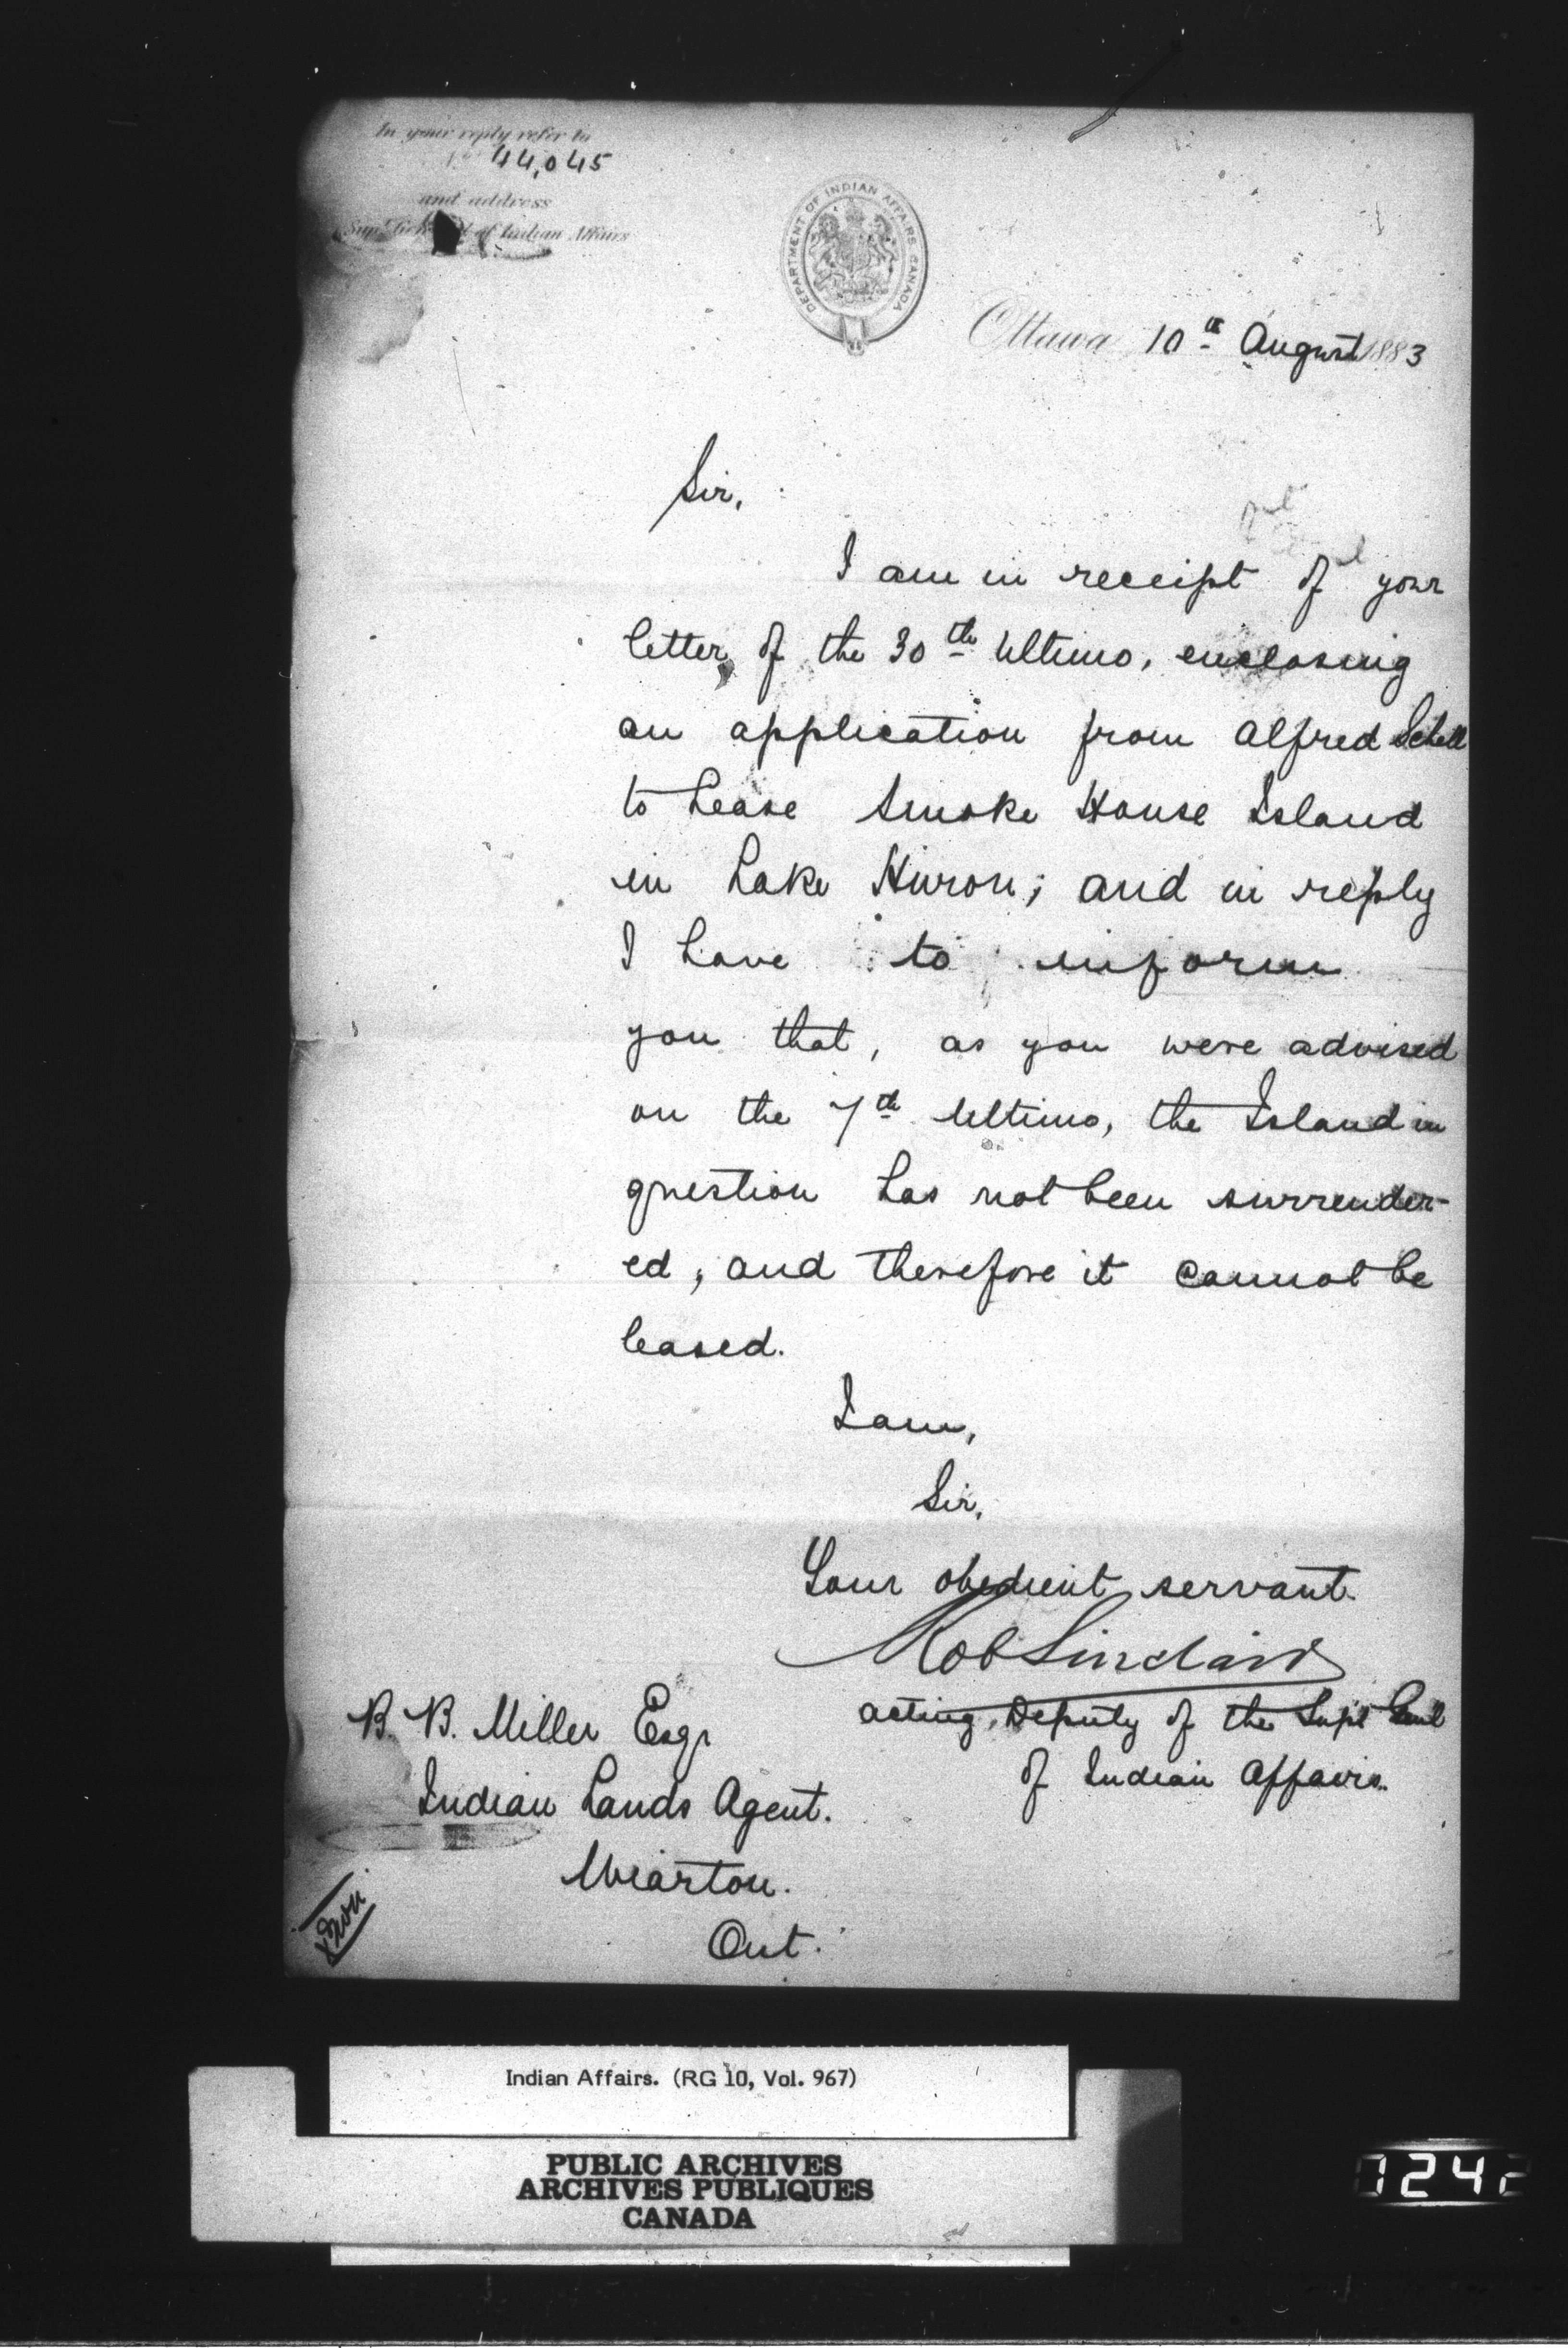 In your reply refer to
No 44,045
and address
Supt. Genl of Indian Affairs
DEPARTMENT OF INDIAN AFFAIRS CANADA
Ottawa 10th August 1883
Sir,
I am in receipt of your
letter of the 30th Ultimo, enclosing
an application from Alfred Schell
to Lease Smoke House Island
in Lake Huron; and in reply
I have to inform
you that, as you were advised
on the 7th Ultimo, the Island in
question has not been surrender-
ed, and therefore it cannot be
leased.
I am,
Sir,
Your obedient servant.
Rob Sinclair
acting Deputy of the Supt Genl
of Indian Affairs.
B. B. Miller Esqr
Indian Lands Agent.
Wiarton.
Ont.
Indian Affairs. (RG 10, Vol. 967)
PUBLIC ARCHIVES
ARCHIVES PUBLIQUES
CANADA
1242